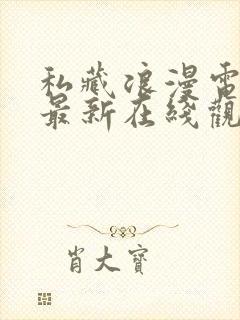 私藏浪漫電
最新在綫觀
肖大寶